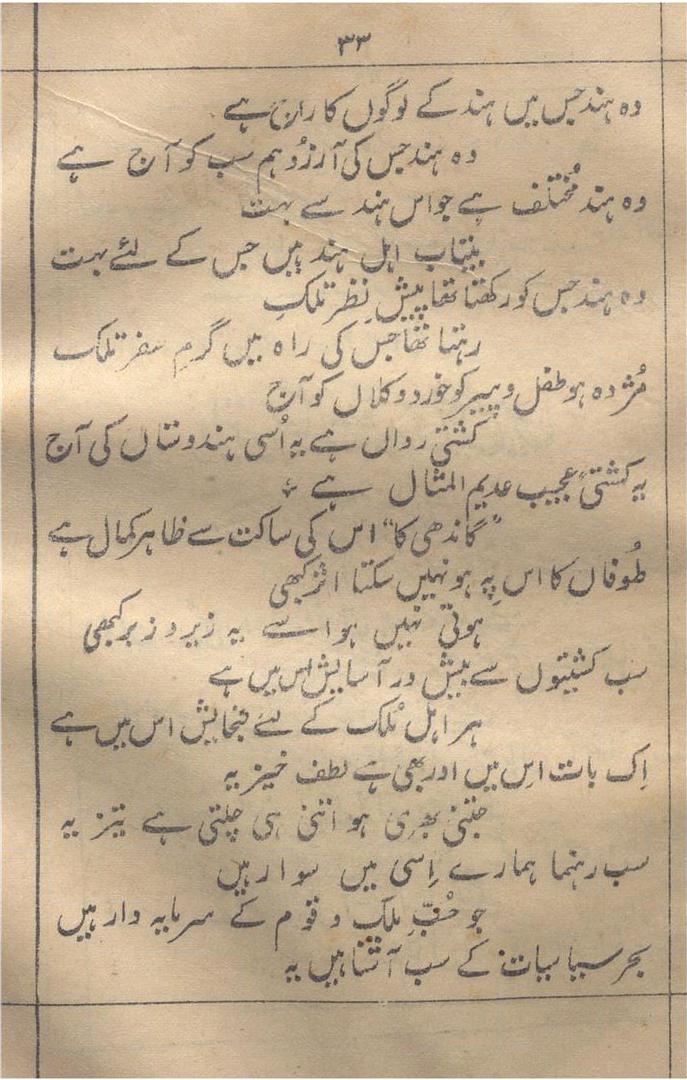 ۳۳
وہ ہند جس میں ہند کے لوگوں کا راج ہے
وہ ہند جس کی آرزُو ہم سب کو آج ہے
وہ ہند مُختلف ہے جو اس ہند سے بہت
بیتاب اہل ہند ہیں جس کے لئے بہت
وہ ہند جس کو رکھتا تھا پیشِ نظر تلک
رہتا تھا جس کی راہ میں گرمِ سفر تلک
مُژدہ ہو طفل و پیر کو خورد و کلاں کو آج
کشتی رواں ہے یہ اُسی ہندوستاں کی آج
یہ کشتیٔ عجیب عدیم المثال ہے
"گاندھی کا" اس کی ساکت سے ظاہر کمال ہے
طُوفاں کا اس پہ ہو نہیں سکتا اثر کبھی
ہوتی نہیں ہوا سے یہ زیر و زبر کبھی
سب کشتیوں سے بیش در آسایش اس میں ہے
ہر اہل مُلک کے لئے گنجایش اس میں ہے
اِک بات اس میں اور بھی ہے لطف خیز یہ
جتنی بھری ہو اتنی ہی چلتی ہے تیز یہ
سب رہنما ہمارے اِسی میں سوار ہیں
جو حُبِّ ملک و قوم کے سرمایہ دار ہیں
بحر سیاسیات کے سب آشنا ہیں یہ